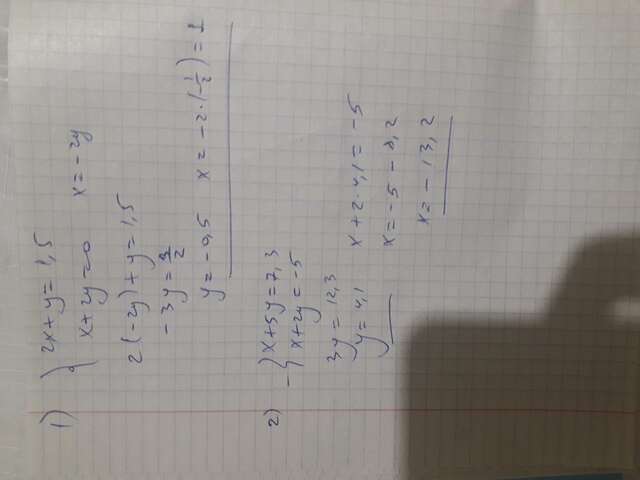 1) { 2x + y = 1,5
x + 2y = 0 x = -2y
2(-2y) + y = 1,5
-3y = 3/2
y = -0,5 x = -2·(-1/2) = 1
2) - { x + 5y = 7,3
x + 2y = -5
3y = 12,3
y = 4,1 x + 2·4,1 = -5
x = -5 - 8,2
x = -13,2